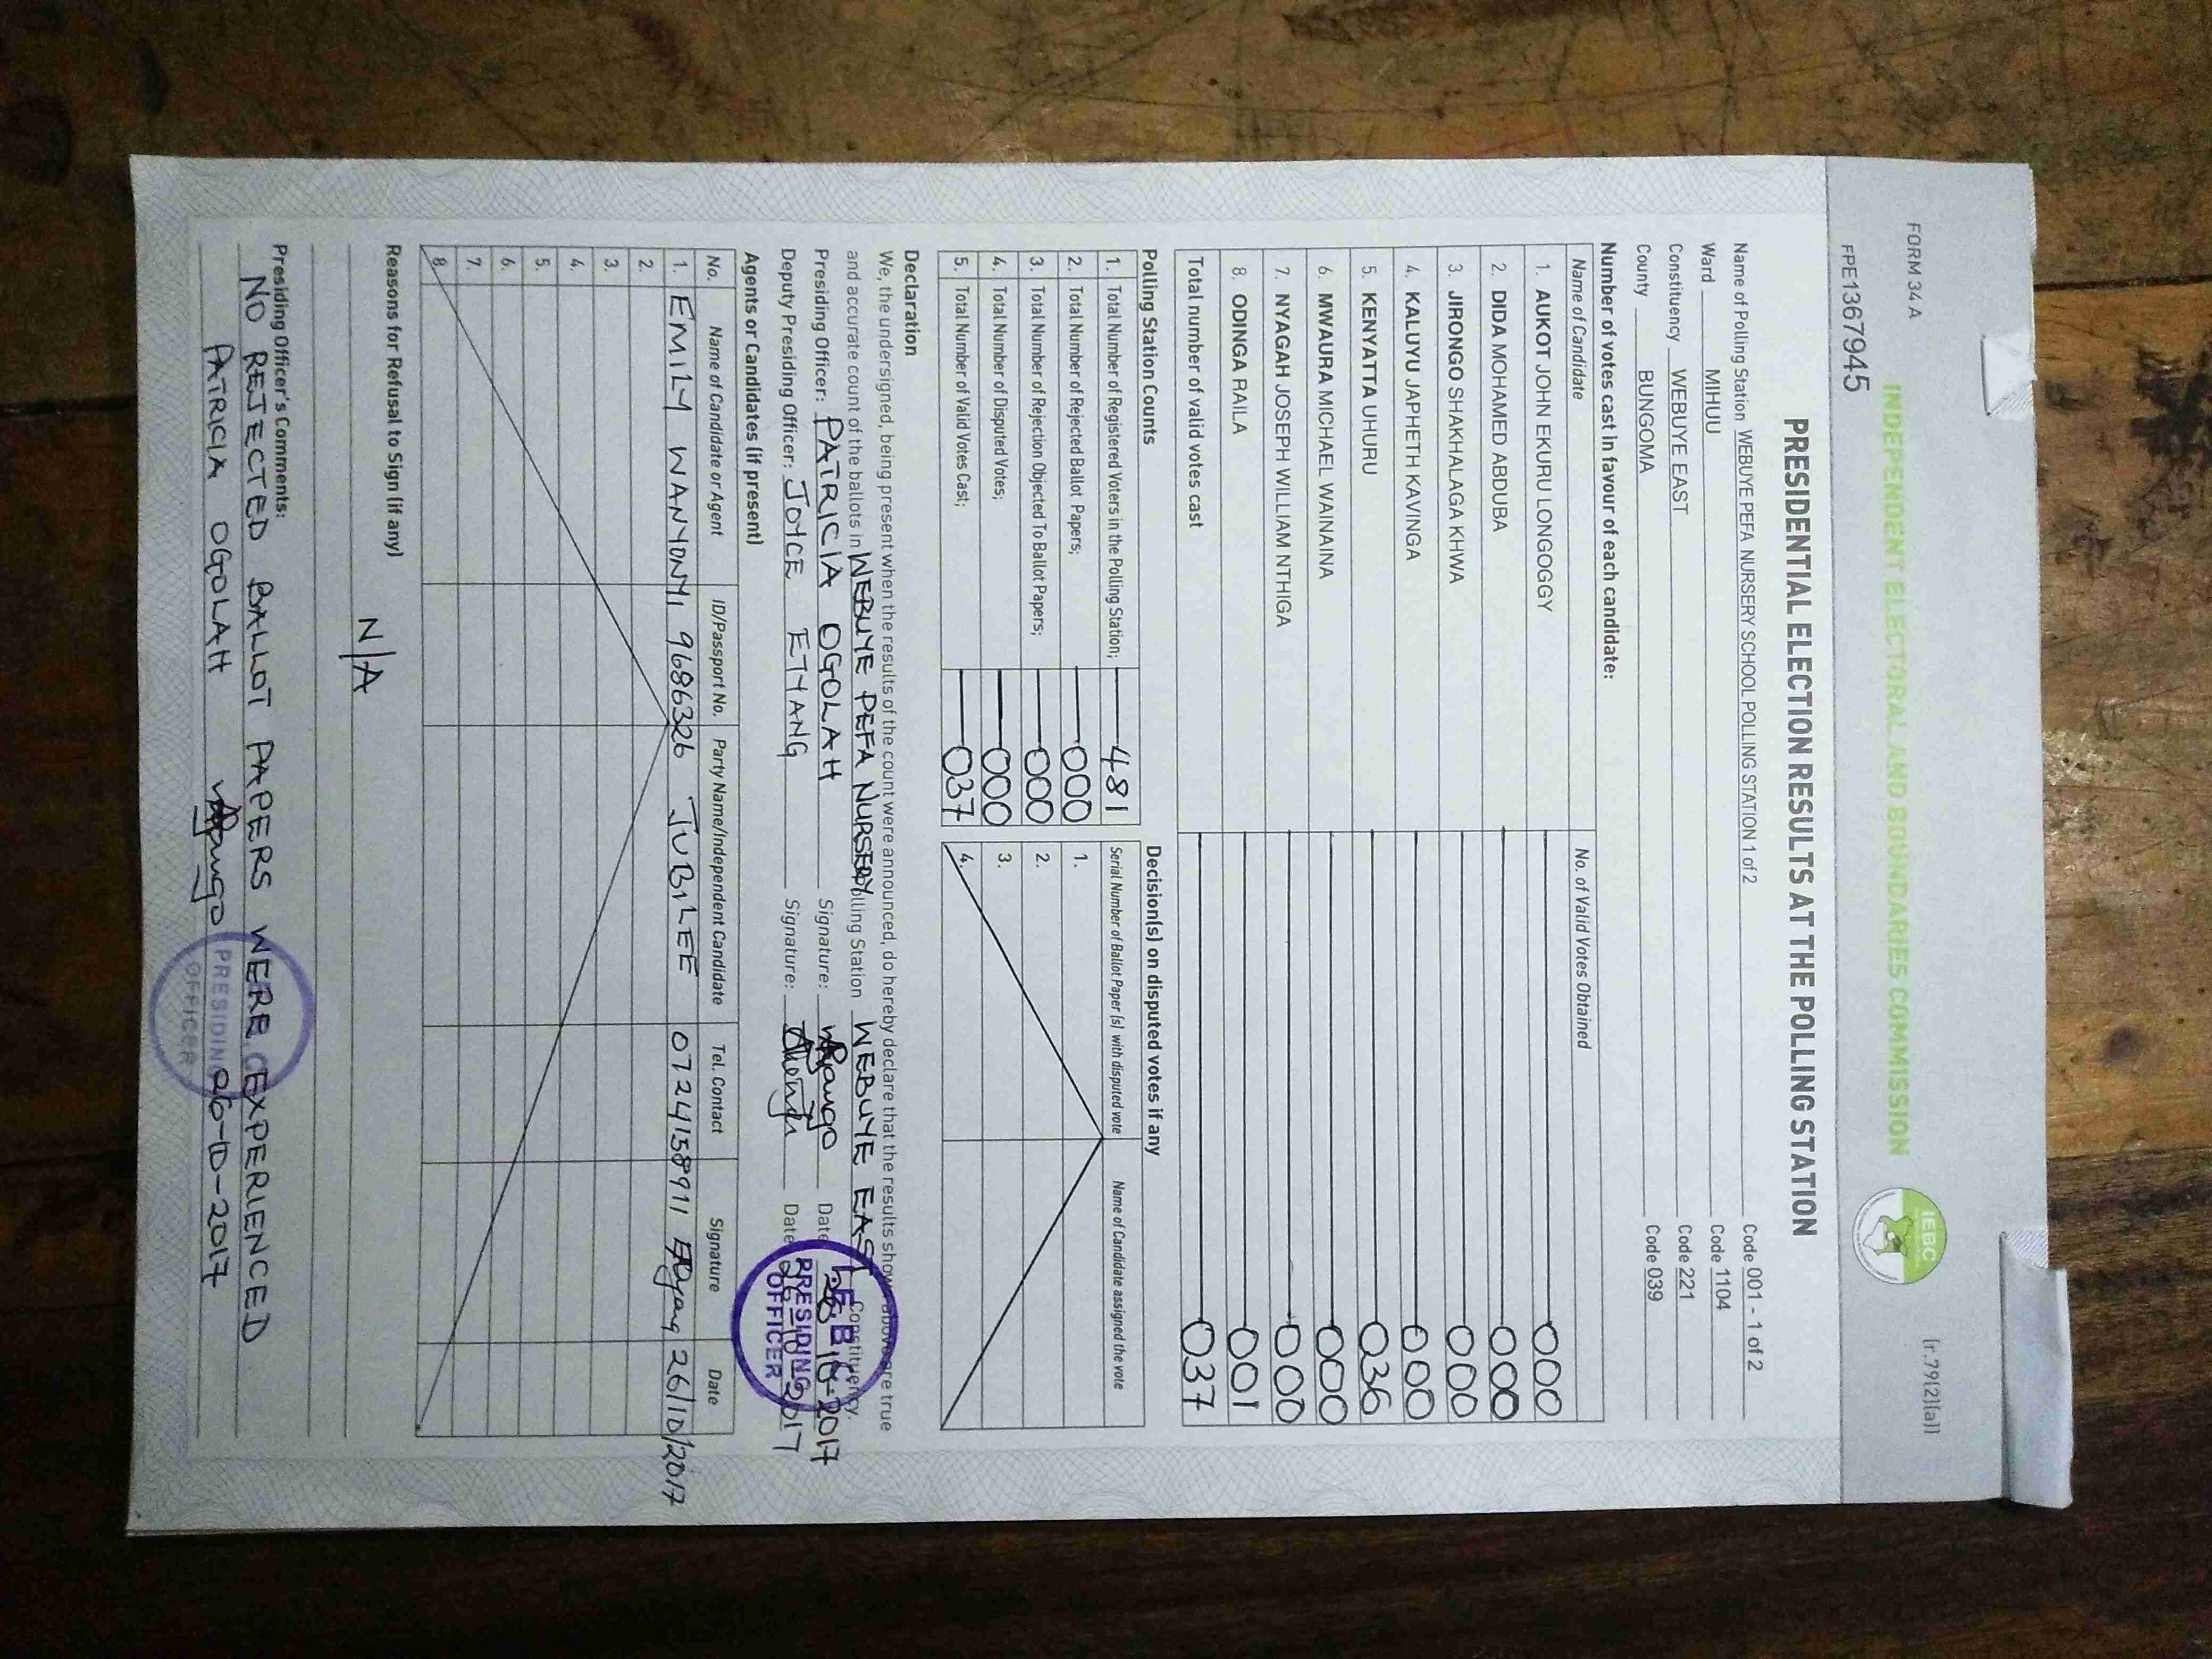 FORM 34 A
(r.79(2)(a))
INDEPENDENT ELECTORAL AND BOUNDARIES COMMISSION
IEBC
FPE1367945
PRESIDENTIAL ELECTION RESULTS AT THE POLLING STATION
Name of Polling Station WEBUYE PEFA NURSERY SCHOOL POLLING STATION 1 of 2 Code 001 - 1 of 2
Ward MIHUU Code 1104
Constituency WEBUYE EAST Code 221
County BUNGOMA Code 039
Number of votes cast in favour of each candidate:
Name of Candidate No. of Valid Votes Obtained
1. AUKOT JOHN EKURU LONGOGGY 000
2. DIDA MOHAMED ABDUBA 000
3. JIRONGO SHAKHALAGA KHWA 000
4. KALUYU JAPHETH KAVINGA 000
5. KENYATTA UHURU 036
6. MWAURA MICHAEL WAINAINA 000
7. NYAGAH JOSEPH WILLIAM NTHIGA 000
8. ODINGA RAILA 001
Total number of valid votes cast 037
Polling Station Counts Decision(s) on disputed votes if any
1. Total Number of Registered Voters in the Polling Station; 481 Serial Number of Ballot Paper (s) with disputed vote Name of Candidate assigned the vote
2. Total Number of Rejected Ballot Papers; 000 1.
3. Total Number of Rejection Objected To Ballot Papers; 000 2.
4. Total Number of Disputed Votes; 000 3.
5. Total Number of Valid Votes Cast; 037 4.
Declaration
We, the undersigned, being present when the results of the count were announced, do hereby declare that the results shown above are true
and accurate count of the ballots in WEBUYE PEFA NURSERY Polling Station WEBUYE EAST Constituency.
Presiding Officer: PATRICIA OGOLAH Signature: Date 26-10-2017
Deputy Presiding Officer: JOYCE ETYANG Signature: Date 26-10-2017
I.E.B.C PRESIDING OFFICER
Agents or Candidates (if present)
No. Name of Candidate or Agent ID/Passport No. Party Name/Independent Candidate Tel. Contact Signature Date
1. EMILY WANYONYI 9686326 JUBILEE 0724158911 26/10/2017
2.
3.
4.
5.
6.
7.
8.
Reasons for Refusal to Sign (if any)
N/A
Presiding Officer's Comments:
NO REJECTED BALLOT PAPERS WERE EXPERIENCED
PATRICIA OGOLAH 26-10-2017
PRESIDING OFFICER